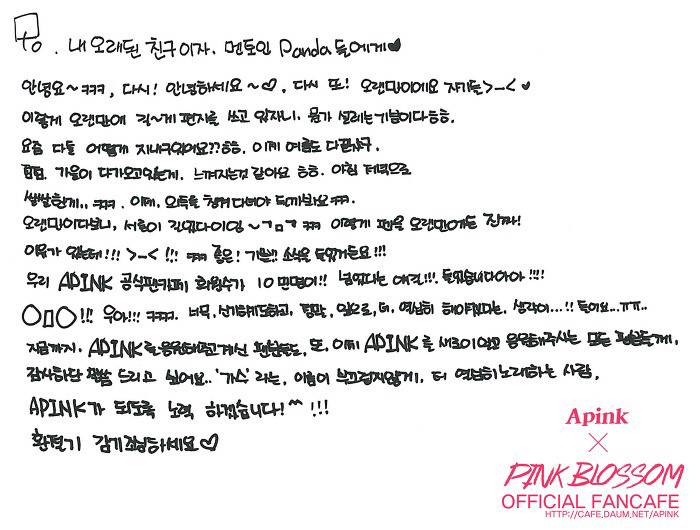 To. 내 오래된 친구이자. 멘토인 Panda들에게♥
안녕요~ㅋㅋㅋ, 다시! 안녕하세요~♡, 다시 또! 오랜만이에요 자기들>-<♥
이렇게 오랜만에 길~게 편지를 쓰고 있자니. 뭔가 설레는기분이다ㅎㅎ.
요즘 다들 어떻게 지내구있어요??ㅎㅎ. 이제 여름도 다갔구.
점점. 가을이 다가오고있는게. 느껴지는것 같아요 ㅎㅎ. 아침 저녁으로
쌀쌀한게.. ㅋㅋ. 이제. 외투를 챙겨 다녀야 돼ㅋㅋ.
오랜만이다보니, 서론이 길었다이잉~ㄱㅁㄱ ㅋㅋ 이렇게 펜을 오랜만에든 진짜!
이유가 있는데!!! >-< !!! ㅋㅋ 좋은! 기쁜!! 소식을 들었거든요!!!
우리 APINK 공식팬카페 회원수가 10만명이!! 넘었다는 얘긴!!!. 들었습니다아아!!!!
○□○!!! 우아!!! ㅋㅋㅋ. 너무, 신기하기도하고, 정말, 앞으로, 더, 열심히 해야겠다는. 생각이...!! 들어요...ㅠㅠ..
지금까지. APINK를응원해주고계신 팬분들도, 또. 이제 APINK를 새로이알고 응원해주시는 모든 팬분들께.
감사하단 말씀 드리고 싶어요.. '가수' 라는, 이름이 부끄럽지않게. 더 열심히노래하는 사람.
APINK가 되도록 노력 하겠습니다!^^ !!!
환절기 감기조심하세요♡
Apink
×
PINK BLOSSOM
OFFICIAL FANCAFE
HTTP://CAFE.DAUM.NET/APINK